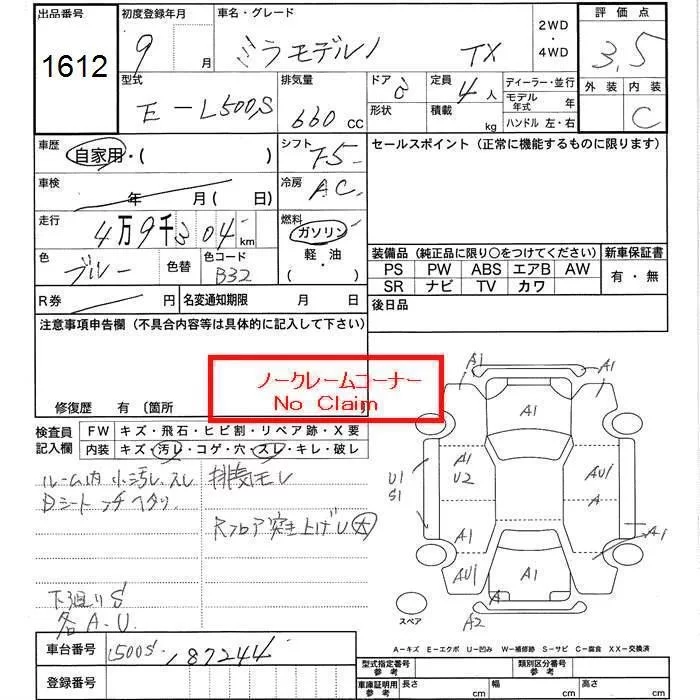 出品番号 初度登録年月 車名・グレード 2WD・4WD 評価点
1612 9 月 ミラモデルノ TX 3,5
型式 排気量 ドア 定員 ディーラー・並行 外装 内装
E-L500S 660 CC 4 人 モデル年式 年 C
形状 積載 kg ハンドル 左・右
車歴 自家用・( ) シフト F5 セールスポイント(正常に機能するものに限ります)
車検 年 月( 日) 冷房 AC
走行 4万9千304 km 燃料 ガソリン・軽・油 ( )
色 ブルー 色替 色コード B32
装備品(純正品に限り○をつけてください) 新車保証書
PS PW ABS エアB AW 有・無
SR ナビ TV カワ
R券 円 名変通知期限 月 日 後日品
注意事項申告欄(不具合内容等は具体的に記入して下さい)
ノークレームコーナー
No Claim
修復歴 有 〔箇所
検査員記入欄 FW キズ・飛石・ヒビ割・リペア跡・X要
内装 キズ・汚レ・コゲ・穴・スレ・キレ・破レ
ルーム内 小汚レ、スレ 排気モレ
Dシート ヘタリ
Rフロア突き上げU大
下廻りS
各A.U.
A1 A1
A1
U1 S1
A1 U2 AU1
A
A1 A1
AU1 A1
A
A2
スペア
A-キズ E-エクボ U-凹み W-補修跡 S-サビ C-腐食 XX-交換済
車台番号 L500S-187244
登録番号
型式指定番号 参考 類別区分番号 参考
車庫証明用 参考 長さ cm 幅 cm 高さ cm